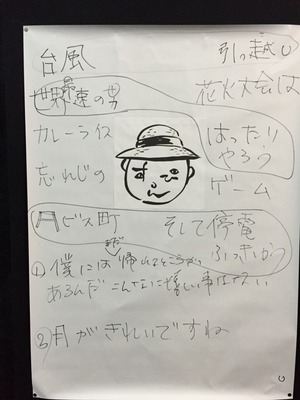 台風
引っ越し
世界最速の男
花火大会は
カレーライス
はったり
やろう
忘れじの
ゲーム
ビス町
そして停電
ふっきかつ
まだ
① 僕には帰れるところが
あるんだ こんなに嬉しい事はない
② 月がきれいですね